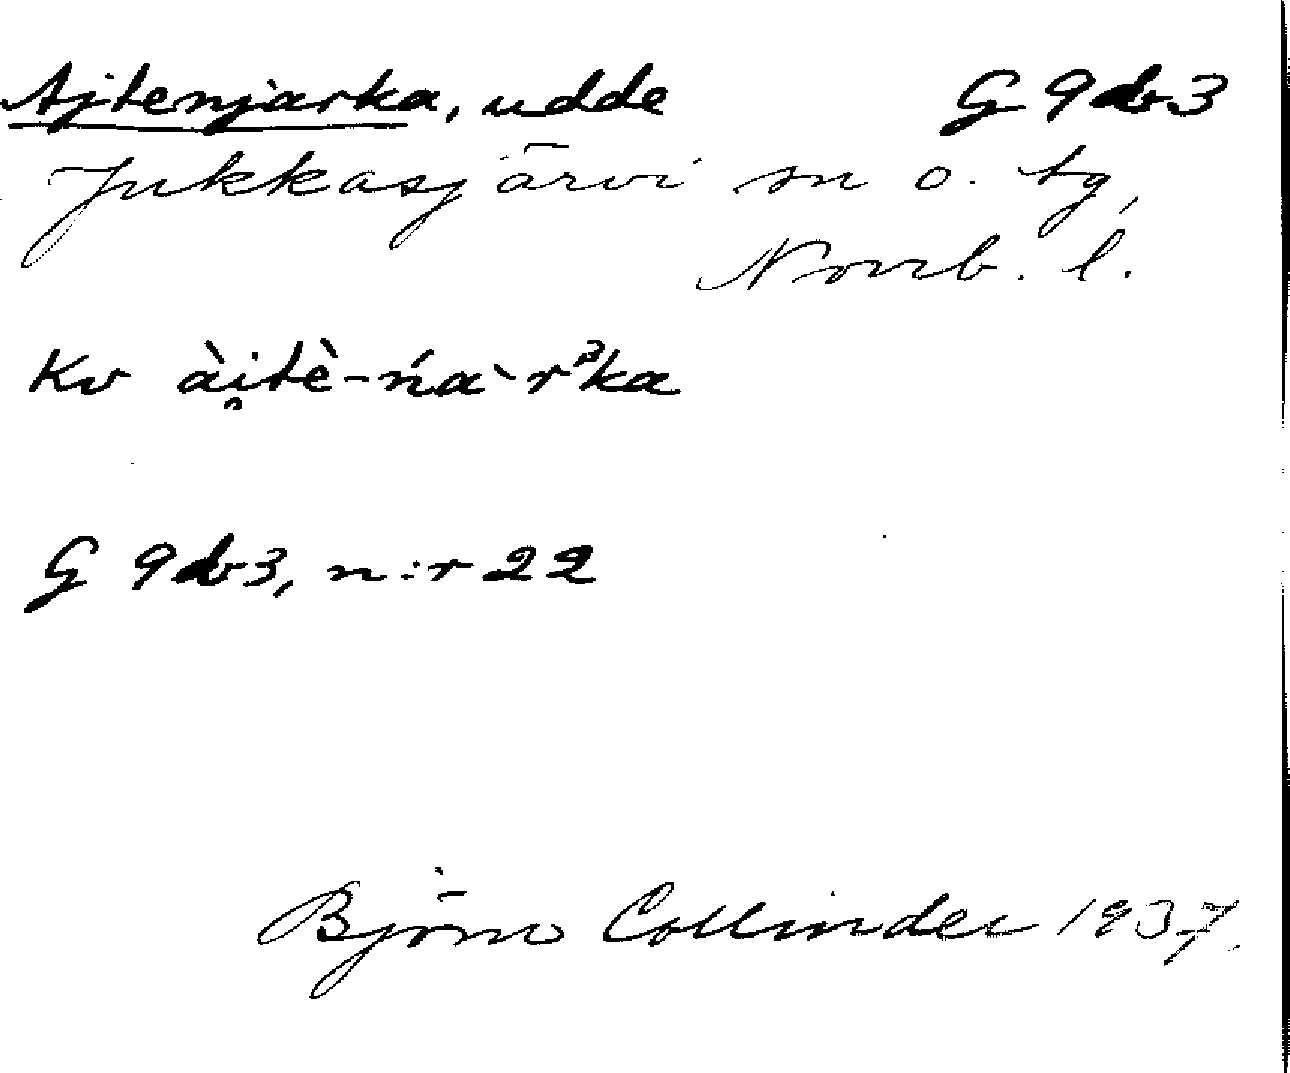 Ajtenjarka, udde G 9db3
Jukkasjärvi sn o. tg,
Norrb. l.
Kv ài̯tè-ńa`rᵊka
G 9db3, n:r 22
Björn Collinder 1937.